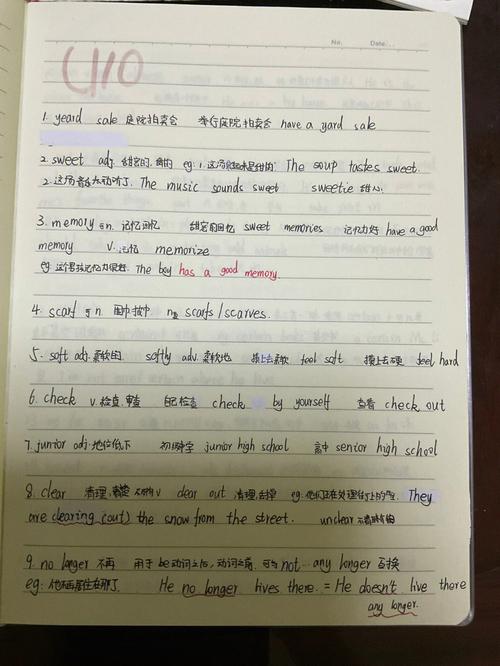 No. Date.
U10
1. yeard sale 庭院拍卖会 举行庭院拍卖会 have a yard sale
2. sweet adj. 甜蜜的, 甜的 eg: 1. 这汤尝起来是甜的 The soup tastes sweet.
2. 这乐音乐动听了. The music sounds sweet sweetie 甜心.
3. memory n. 记忆 回忆 甜蜜的回忆 sweet memories 记忆力好 have a good
memory v. 记忆 memorize
eg. 这个男孩记忆力很好. The boy has a good memory.
4. scarf n. 围巾 披巾 scarfs / scarves.
5. soft adj. 柔软的 softly adv. 柔软地 摸上去柔软 feel soft 摸上去硬 feel hard
6. check v. 检查, 审查 自己检查 check by yourself 查看 check out
7. junior adj. 地位低下 初级中学 junior high school 高中 senior high school
8. clear 清理, 清楚 v clear out 清理 eg: 他们正在处理街上的雪. They
are clearing (out) the snow from the street. unclear
9. no longer 不再 用于be动词之后, 动词之前, 可与 not... any longer 互换
eg: 他不再居住在那了. He no longer lives there. = He doesn't live there
any longer.